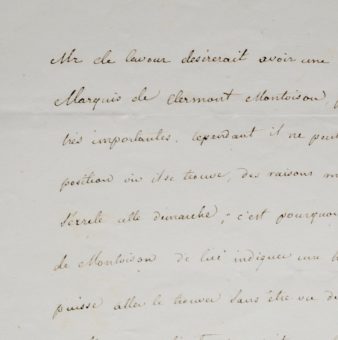 Mr de Cavour désirerait avoir une
Marquis de Clermont Montoison,
très importantes. Cependant il ne peut
position où il se trouve, des raisons
cette demarche; c'est pourquoi
de Montoison de lui indiquer une
puisse aller le trouver sans être vu de